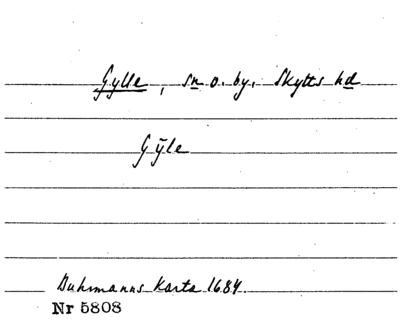 Gylle, sn o. by, Skytts hd
Gÿle
Buhrmanns Karta 1684.
Nr 5808